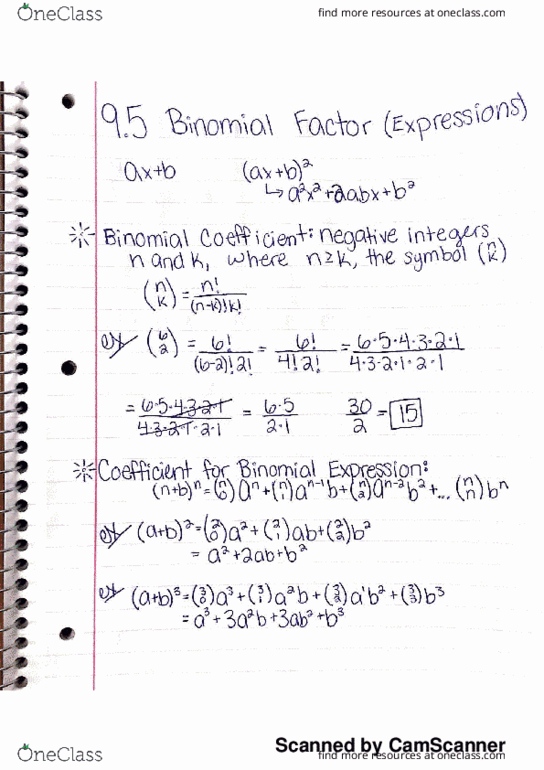 OneClass
find more resources at oneclass.com
9.5 Binomial Factor (Expressions)
ax+b (ax+b)²
↳ a²x²+2abx+b²
Binomial Coefficient: negative integers
n and k, where n≥k, the symbol (n k)
(n k) = n! / (n-k)!k!
ex (6 2) = 6! / (6-2)!2! = 6! / 4!2! = 6·5·4·3·2·1 / 4·3·2·1·2·1
= 6·5·4·3·2·1 / 4·3·2·1·2·1 = 6·5 / 2·1 30 / 2 = 15
Coefficient for Binomial Expression:
(n+b)ⁿ = (n 0)aⁿ + (n 1)aⁿ⁻¹b + (n 2)aⁿ⁻²b² + ... (n n)bⁿ
ex (a+b)² = (2 0)a² + (2 1)ab + (2 2)b²
= a² + 2ab + b²
ex (a+b)³ = (3 0)a³ + (3 1)a²b + (3 2)a¹b² + (3 3)b³
= a³ + 3a²b + 3ab² + b³
Scanned by CamScanner
OneClass
find more resources at oneclass.com